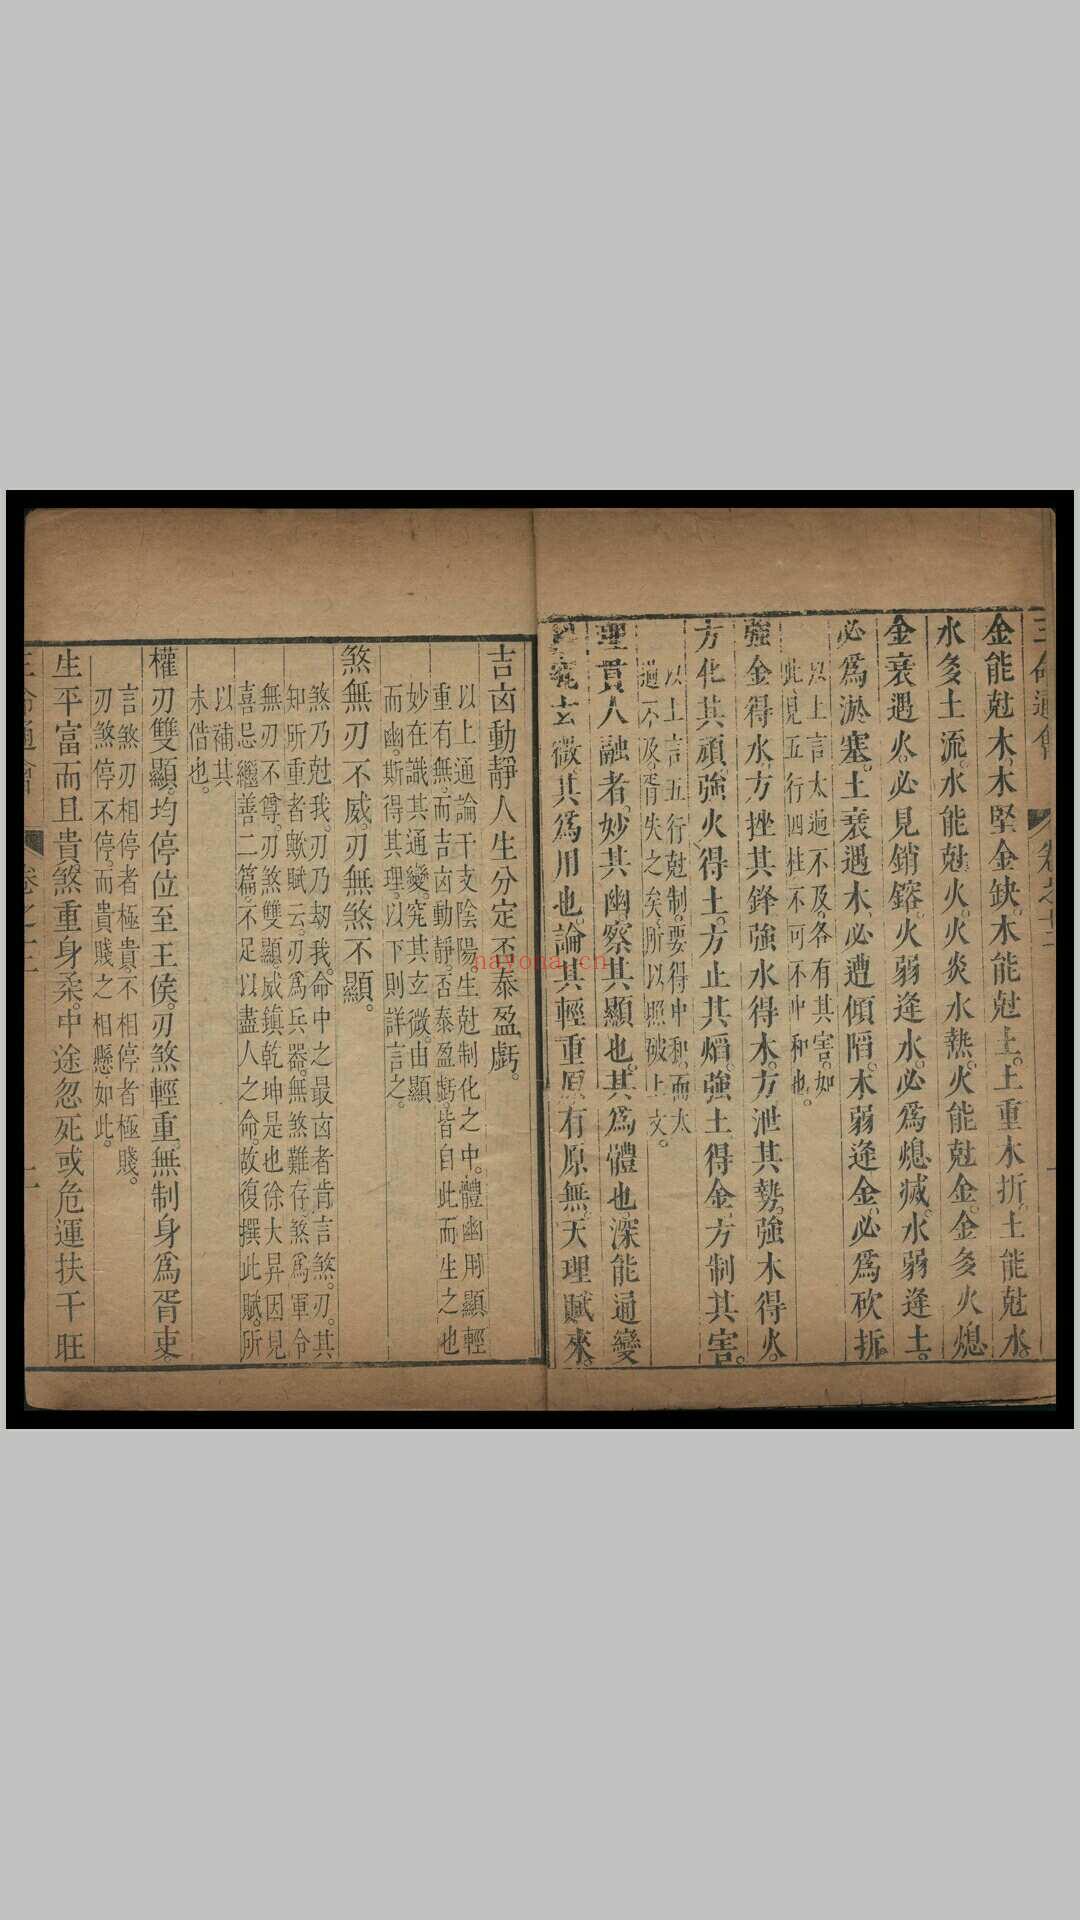 三命通會 卷之十二
金能尅木。木堅金缺。木能尅土。土重木折。土能尅水。
水多土流。水能尅火。火炎水熱。火能尅金。金多火熄。
金衰遇火。必見銷鎔。火弱逢水。必爲熄滅。水弱逢土。
必爲淤塞。土衰遇木。必遭傾陷。木弱逢金。必爲砍折。
以上言太過不及。各有其害。如
此見五行四柱不可不中和也。
強金得水。方挫其鋒。強水得木。方泄其勢。強木得火。
方化其頑。強火得土。方止其熖。強土得金。方制其害。
以上言五行尅制。要得中和。而太
過不及。胥失之矣。所以照破上文。
理貫人融者。妙其幽。察其顯也。其爲體也。深能通變
究玄微。其爲用也。論其輕重。原有原無。天理賦來。
吉凶動靜。人生分定。丕泰盈虧。
以上通論干支陰陽。生尅制化之中。體幽用顯。輕
重有無。而吉凶動靜。否泰盈虧。皆自此而生之也
妙在識其通變。究其玄微。由顯
而幽。斯得其理。以下則詳言之。
煞無刃不威。刃無煞不顯。
煞乃尅我。刃乃劫我。命中之最凶者。肯言煞。刃。其
知所重者歟。賦云。刃爲兵器。無煞難存。煞爲軍令
無刃不尊。刃煞雙顯。威鎮乾坤是也。徐大昇因見
喜忌繼善二篇。不足以盡人之命。故復撰此賦。所
以補其
未偹也。
權刃雙顯。均停位至王侯。刃煞輕重。無制身爲胥吏。
言煞刃相停者極貴。不相停者極賤。
刃煞停不停。而貴賤之相懸如此。
生平富而且貴。煞重身柔。中途忽死或危。運扶干旺
三命通會 卷之十二
nayona.cn